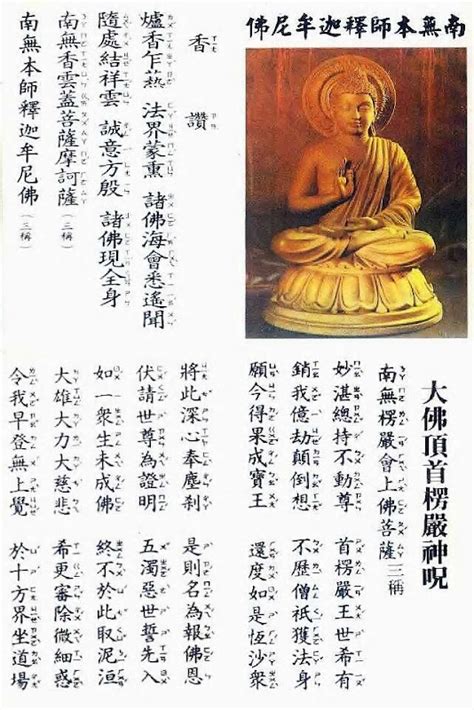 南無本師釋迦牟尼佛
香讚
爐香乍爇 法界蒙熏 諸佛海會悉遙聞
隨處結祥雲 誠意方殷 諸佛現全身
南無香雲蓋菩薩摩訶薩(三稱)
南無本師釋迦牟尼佛(三稱)
大佛頂首楞嚴神呪
南無楞嚴會上佛菩薩 三稱
妙湛總持不動尊 首楞嚴王世希有
銷我億劫顛倒想 不歷僧祇獲法身
願今得果成寶王 還度如是恆沙眾
將此深心奉塵剎 是則名為報佛恩
伏請世尊為證明 五濁惡世誓先入
如一眾生未成佛 終不於此取泥洹
大雄大力大慈悲 希更審除微細惑
令我早登無上覺 於十方界坐道場